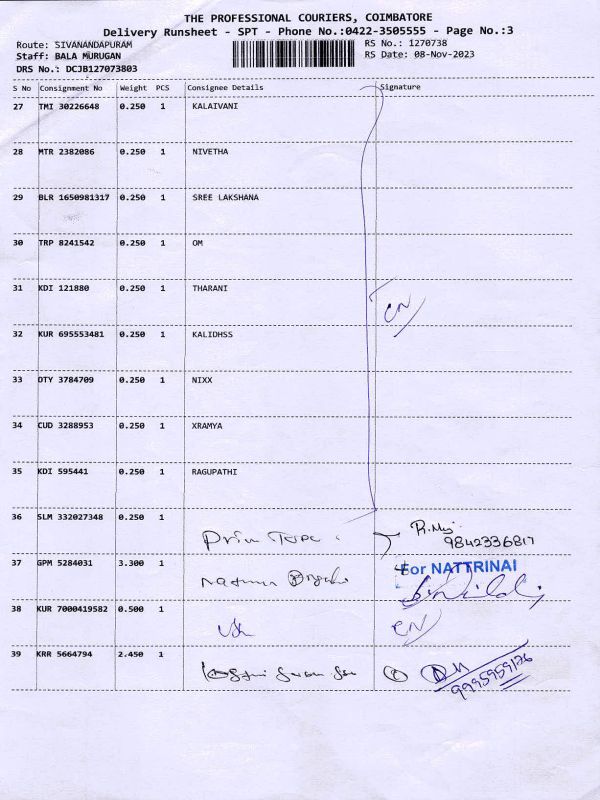 THE PROFESSIONAL COURIERS, COIMBATORE
Delivery Runsheet - SPT - Phone No.:0422-3505555 - Page No.:3
Route: SIVANANDAPURAM RS No.: 1270738
Staff: BALA MURUGAN RS Date: 08-Nov-2023
DRS No.: DCJB127073803
S No Consignment No Weight PCS Consignee Details Signature
27 TMI 30226648 0.250 1 KALAIVANI
28 MTR 2382086 0.250 1 NIVETHA
29 BLR 1650981317 0.250 1 SREE LAKSHANA
30 TRP 8241542 0.250 1 OM
31 KDI 121880 0.250 1 THARANI
CN
32 KUR 695553481 0.250 1 KALIDHSS
33 OTY 3784709 0.250 1 NIXX
34 CUD 3288953 0.250 1 XRAMYA
35 KDI 595441 0.250 1 RAGUPATHI
36 SLM 332027348 0.250 1
9842336817
37 GPM 5284031 3.300 1 For NATTRINAI
38 KUR 7000419582 0.500 1 CN
39 KRR 5664794 2.450 1
9995959126